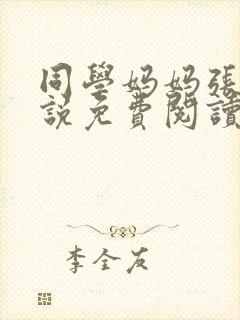 同學妈妈張
說免費閱讀
李全友